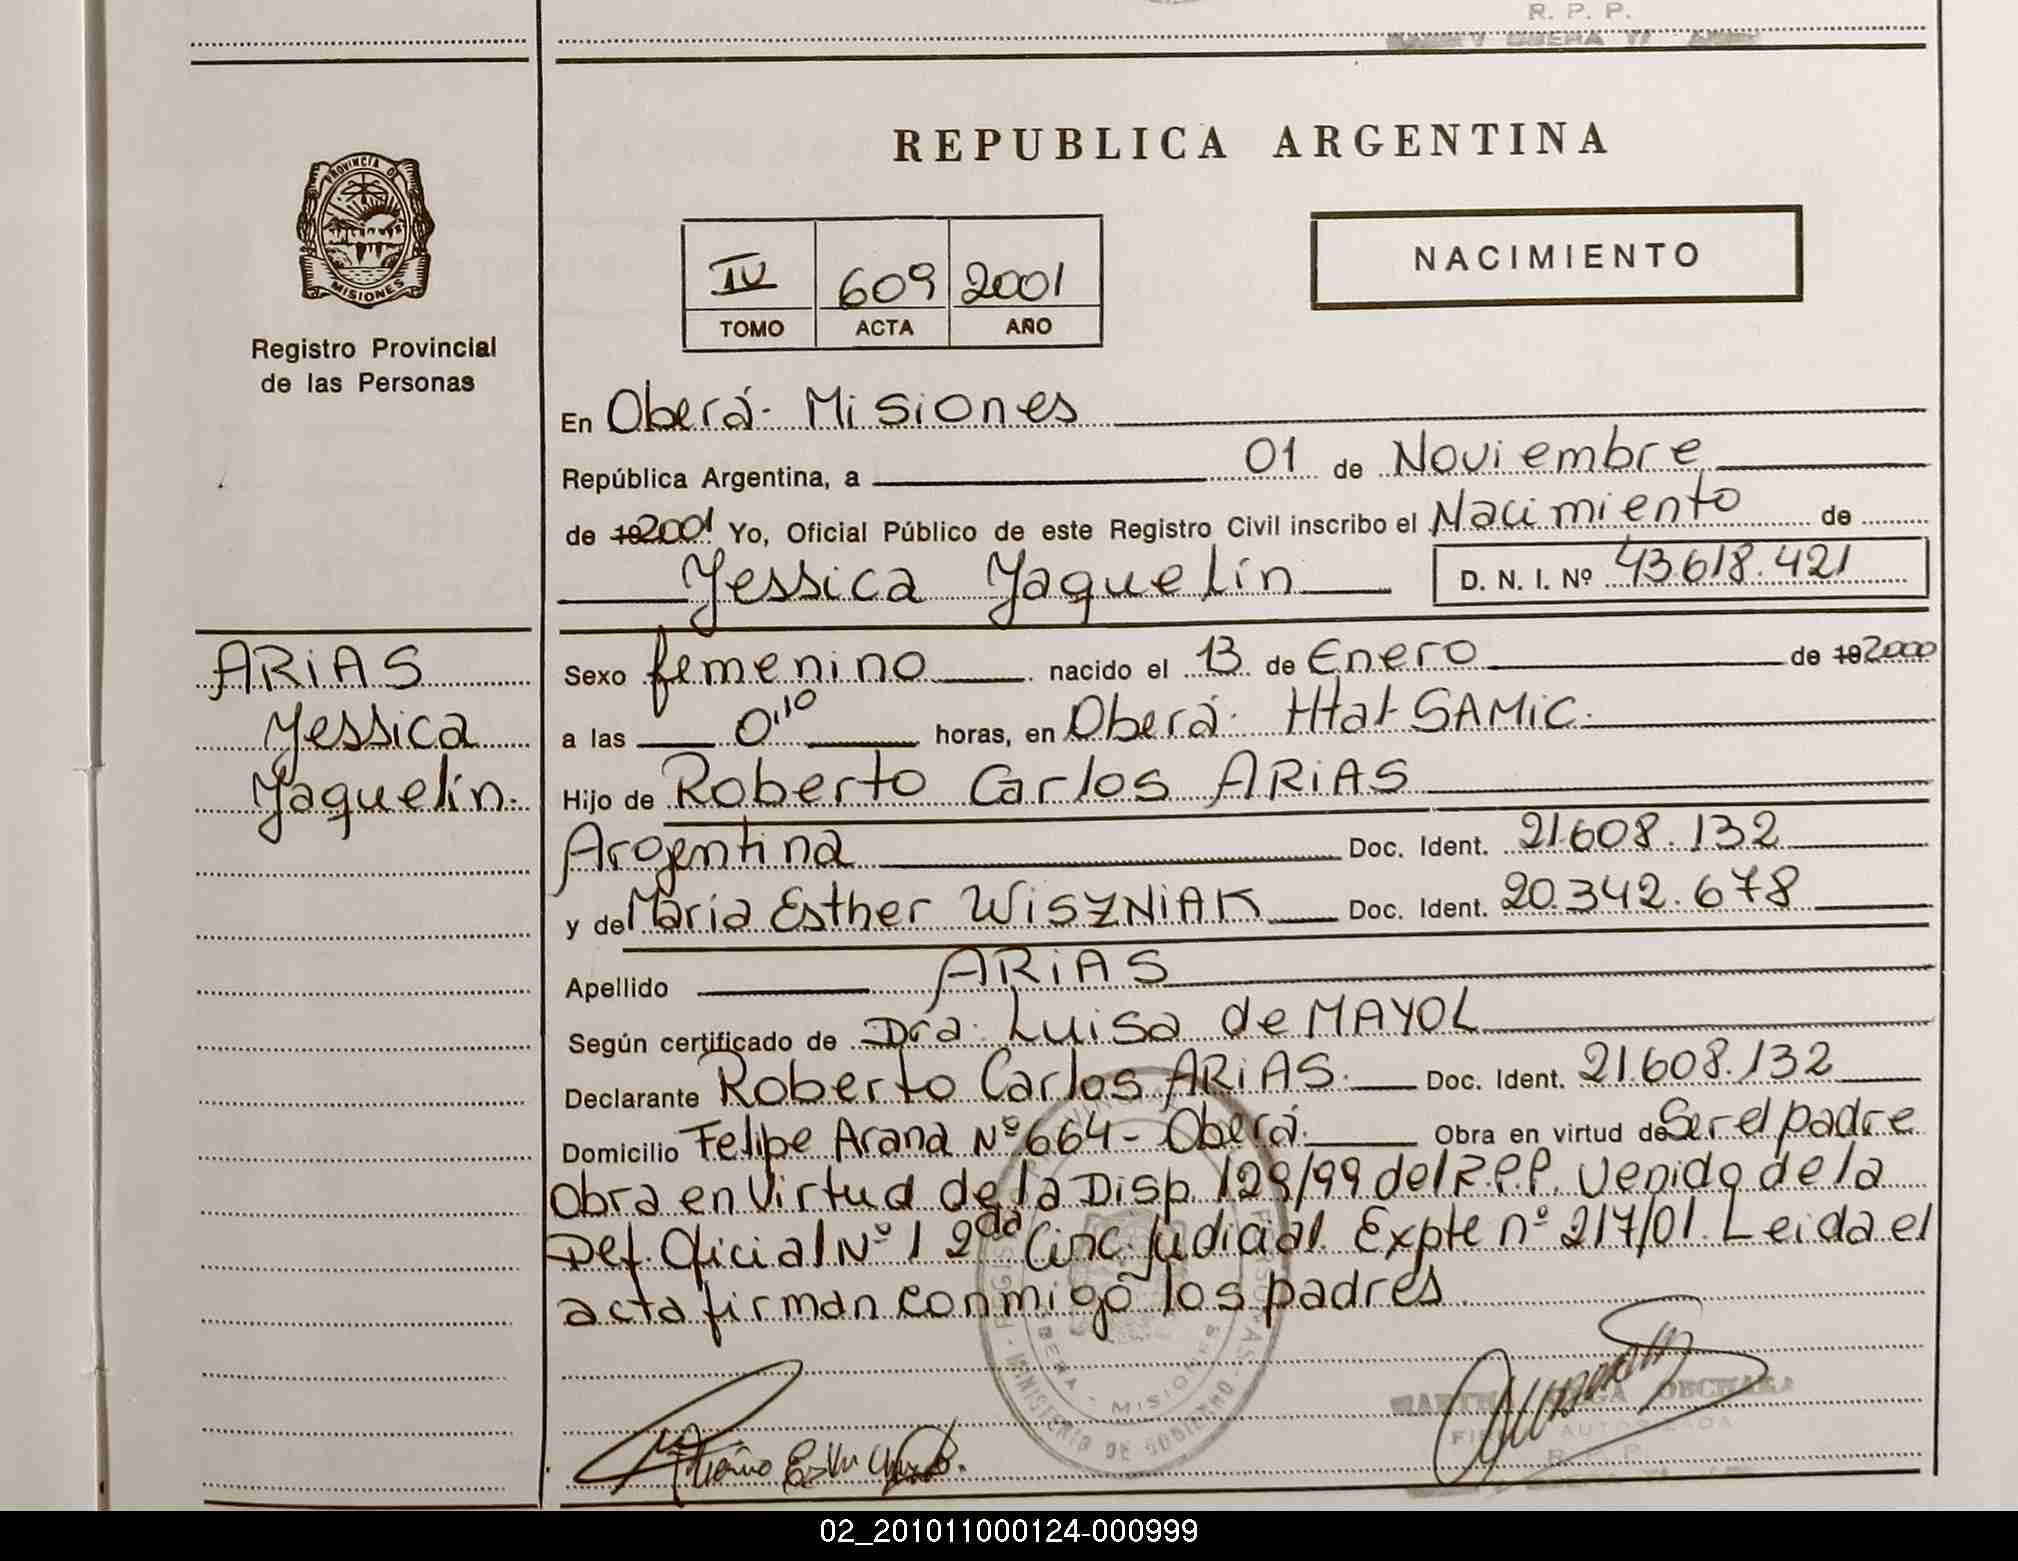 R. P. P.
PROVINCIA DE
MISIONES
Registro Provincial
de las Personas
REPUBLICA ARGENTINA
IV 609 2001
TOMO ACTA AÑO
NACIMIENTO
En Oberá- Misiones
República Argentina, a 01 de Noviembre
de 19 2001 Yo, Oficial Público de este Registro Civil inscribo el Nacimiento de
Yessica Yaquelin D. N. I. Nº 43.618.421
ARIAS
Yessica
Yaquelin.
Sexo femenino nacido el 13 de Enero de 19 2000
a las 0,10 horas, en Oberá- Htal SAMIC.
Hijo de Roberto Carlos ARIAS
Argentina Doc. Ident. 21.608.132
y de María Esther WISZNIAK Doc. Ident. 20.342.678
Apellido ARIAS
Según certificado de Dra. Luisa de MAYOL
Declarante Roberto Carlos ARIAS. Doc. Ident. 21.608.132
Domicilio Felipe Arana Nº 664- Oberá. Obra en virtud de Ser el padre
Obra en virtud de la Disp. 129/99 del R.P.P. Venido de la
Def. Oficial Nº 1 2da Circ. Judicial. Expte nº 217/01. Leida el
acta firman conmigo los padres
MISIONES
MINISTERIO DE GOBIERNO
AUTORIZADA
R. P. P.
02_201011000124-000999